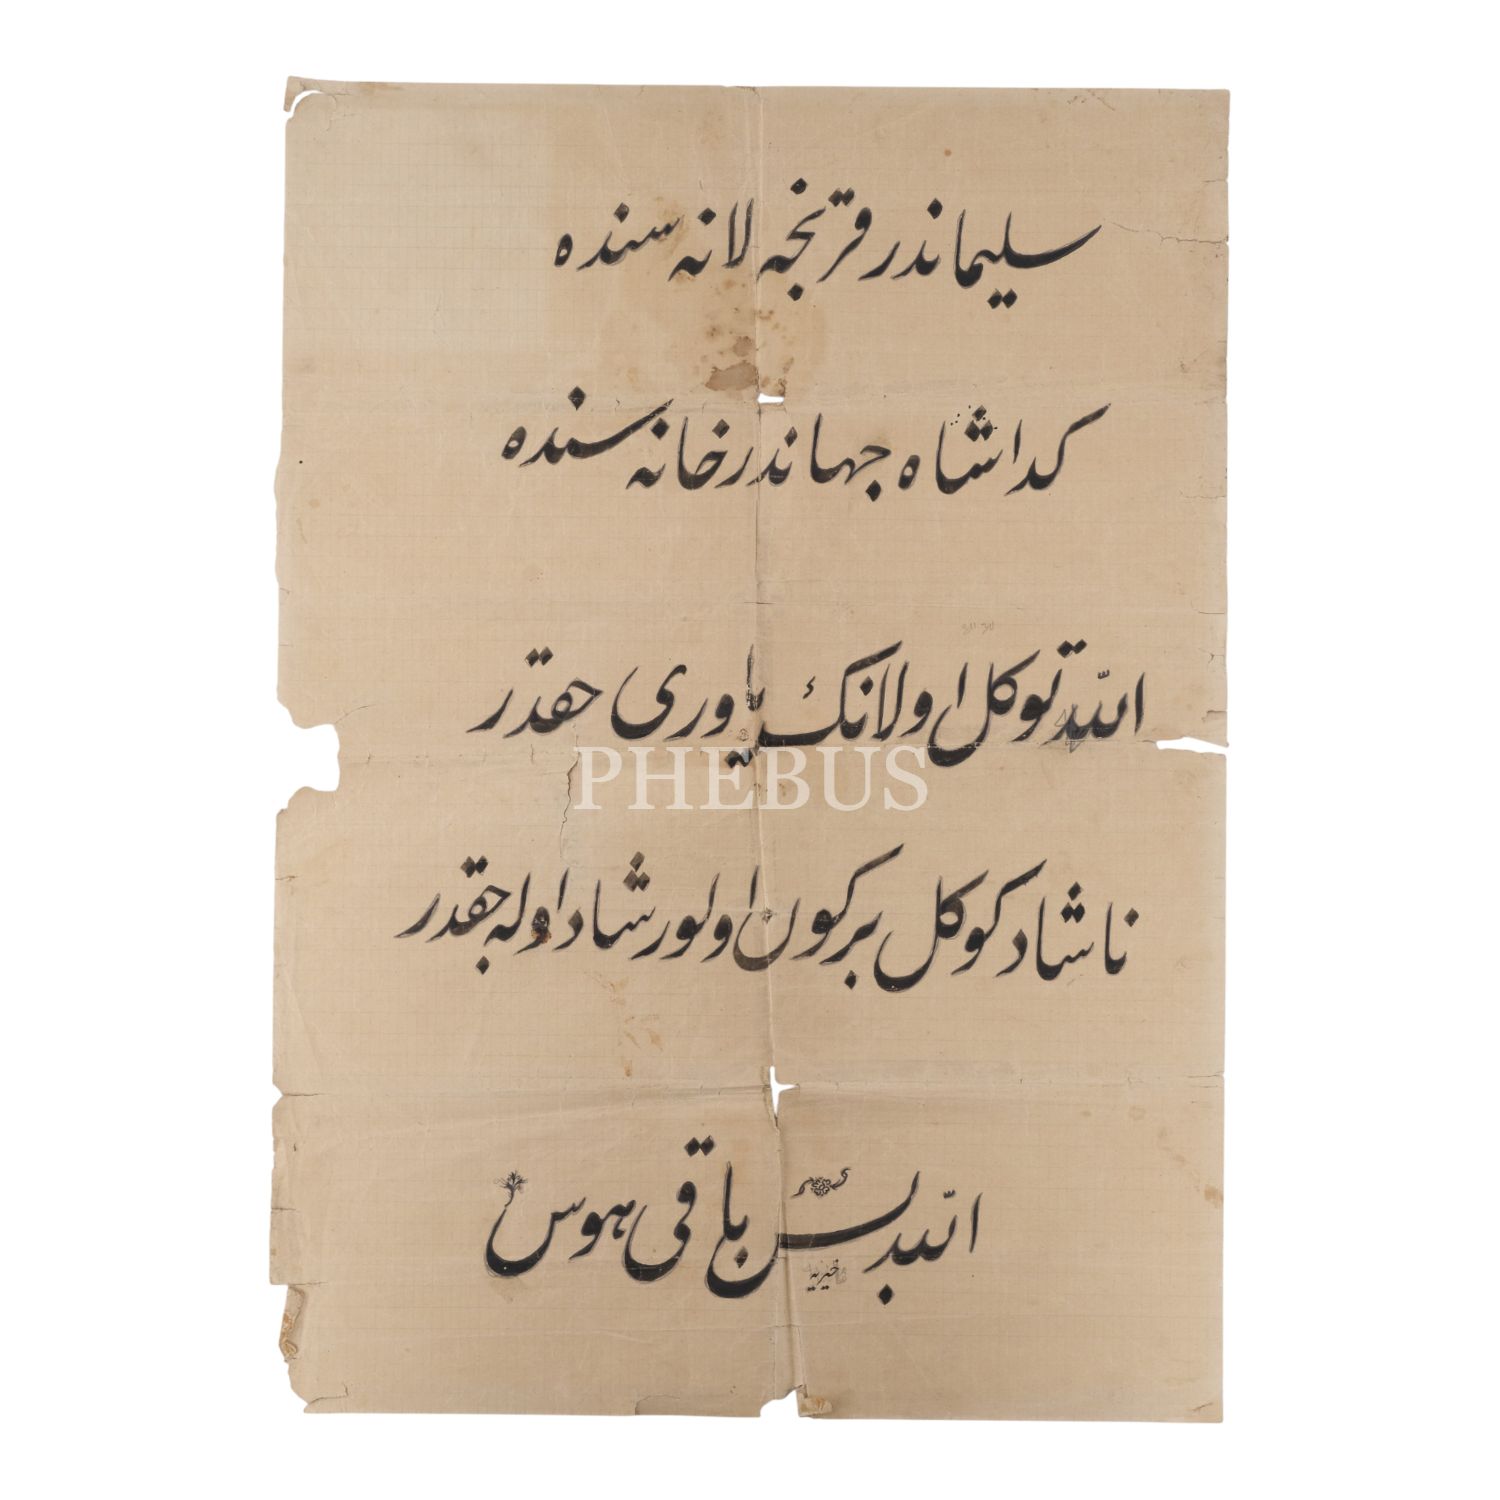 سلیماندر قرنجه لانه سنده
كدا شاه جهاندر خانه سنده
اللّه توكل اولانڭ یاوری حقدر
PHEBUS
ناشاد كوكل بر كون اولور شاد اوله جقدر
اللّه بس باقی هوس
خیریه